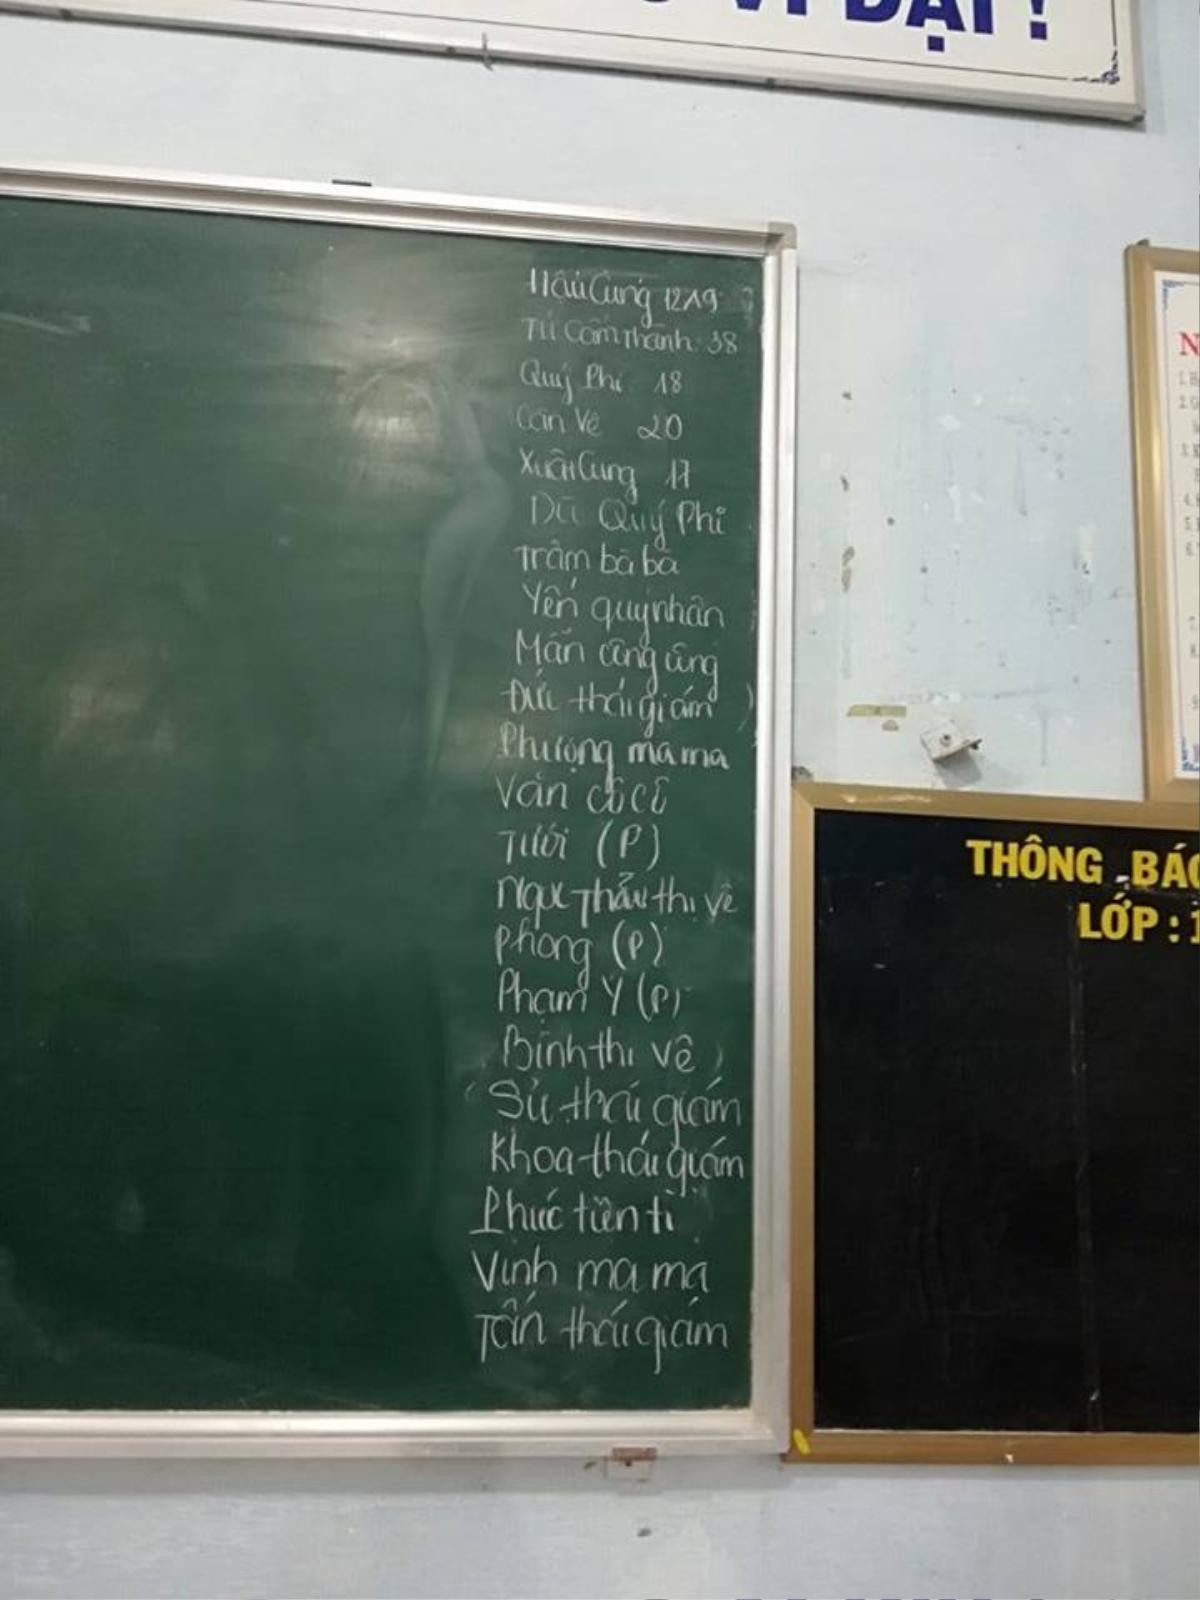 VĨ ĐẠI !
Hậu Cung 12A9
Tử Cấm Thành: 38
Quý Phi 18
Cán Vệ 20
Xuân Cung 17
Dũ Quý Phi
Trâm bā bà
Yến quý nhân
Mẫn công công
Đức thái giám
Phượng ma ma
Vân cô cô
Tươi (P)
Ngọc Thẩu thị vệ
Phong (P)
Phạm Ý (P)
Bình thị vệ
Sử thái giám
Khoa thái giám
Phúc tiện tì
Vinh ma ma
Tấn thái giám
THÔNG BÁO
LỚP : 1
N